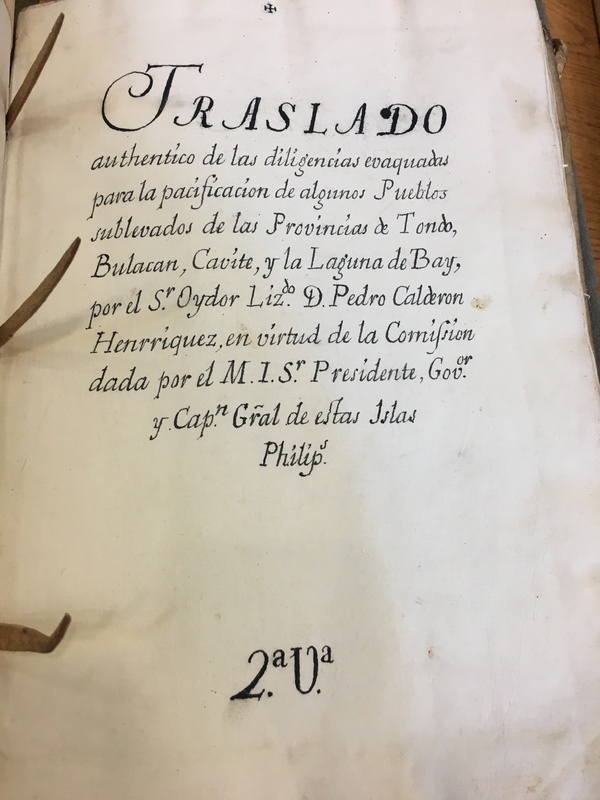 TRASLADO
authentico de las diligencias evaquadas
para la pacificacion de algunos Pueblos
sublevados de las Provincias de Tondo,
Bulacan, Cavite, y la Laguna de Bay,
por el S.r Oydor Liz.do D. Pedro Calderon
Henrriquez, en virtud de la Comiſsion
dada por el M. I. S.r Presidente, Gov.or
y Cap.n Gr̃al de eſtas Islas
Philip.s
2.a V.a